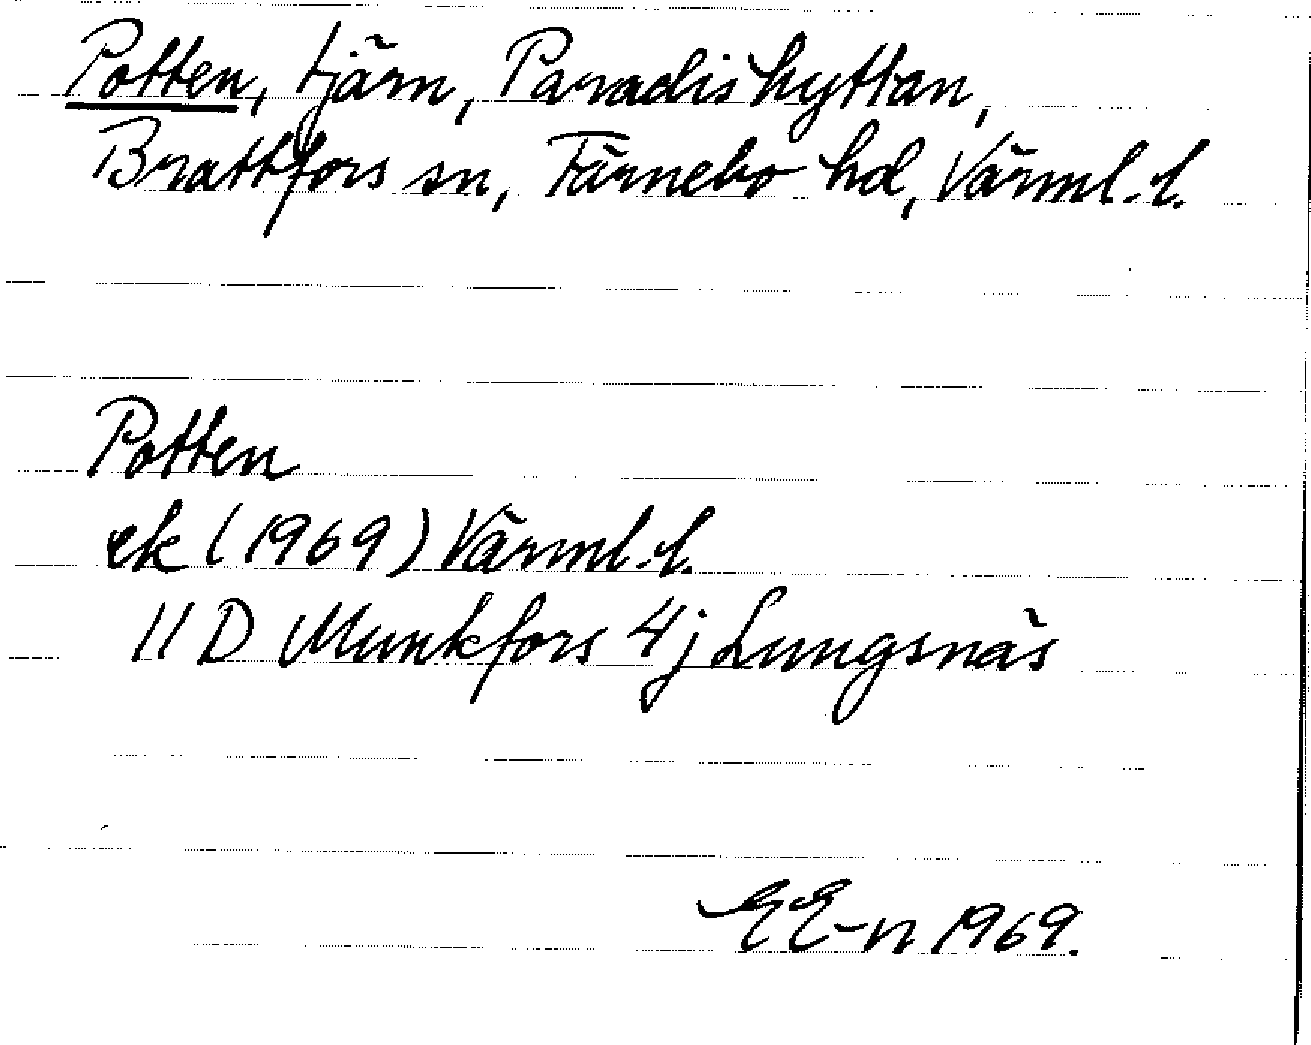 Potten, tjärn, Paradishyttan,
Brattfors sn, Färnebo hd, Värml. l.
Potten
ek (1969) Värml. l.
11 D Munkfors 4j Lungsnäs
EE-n 1969.